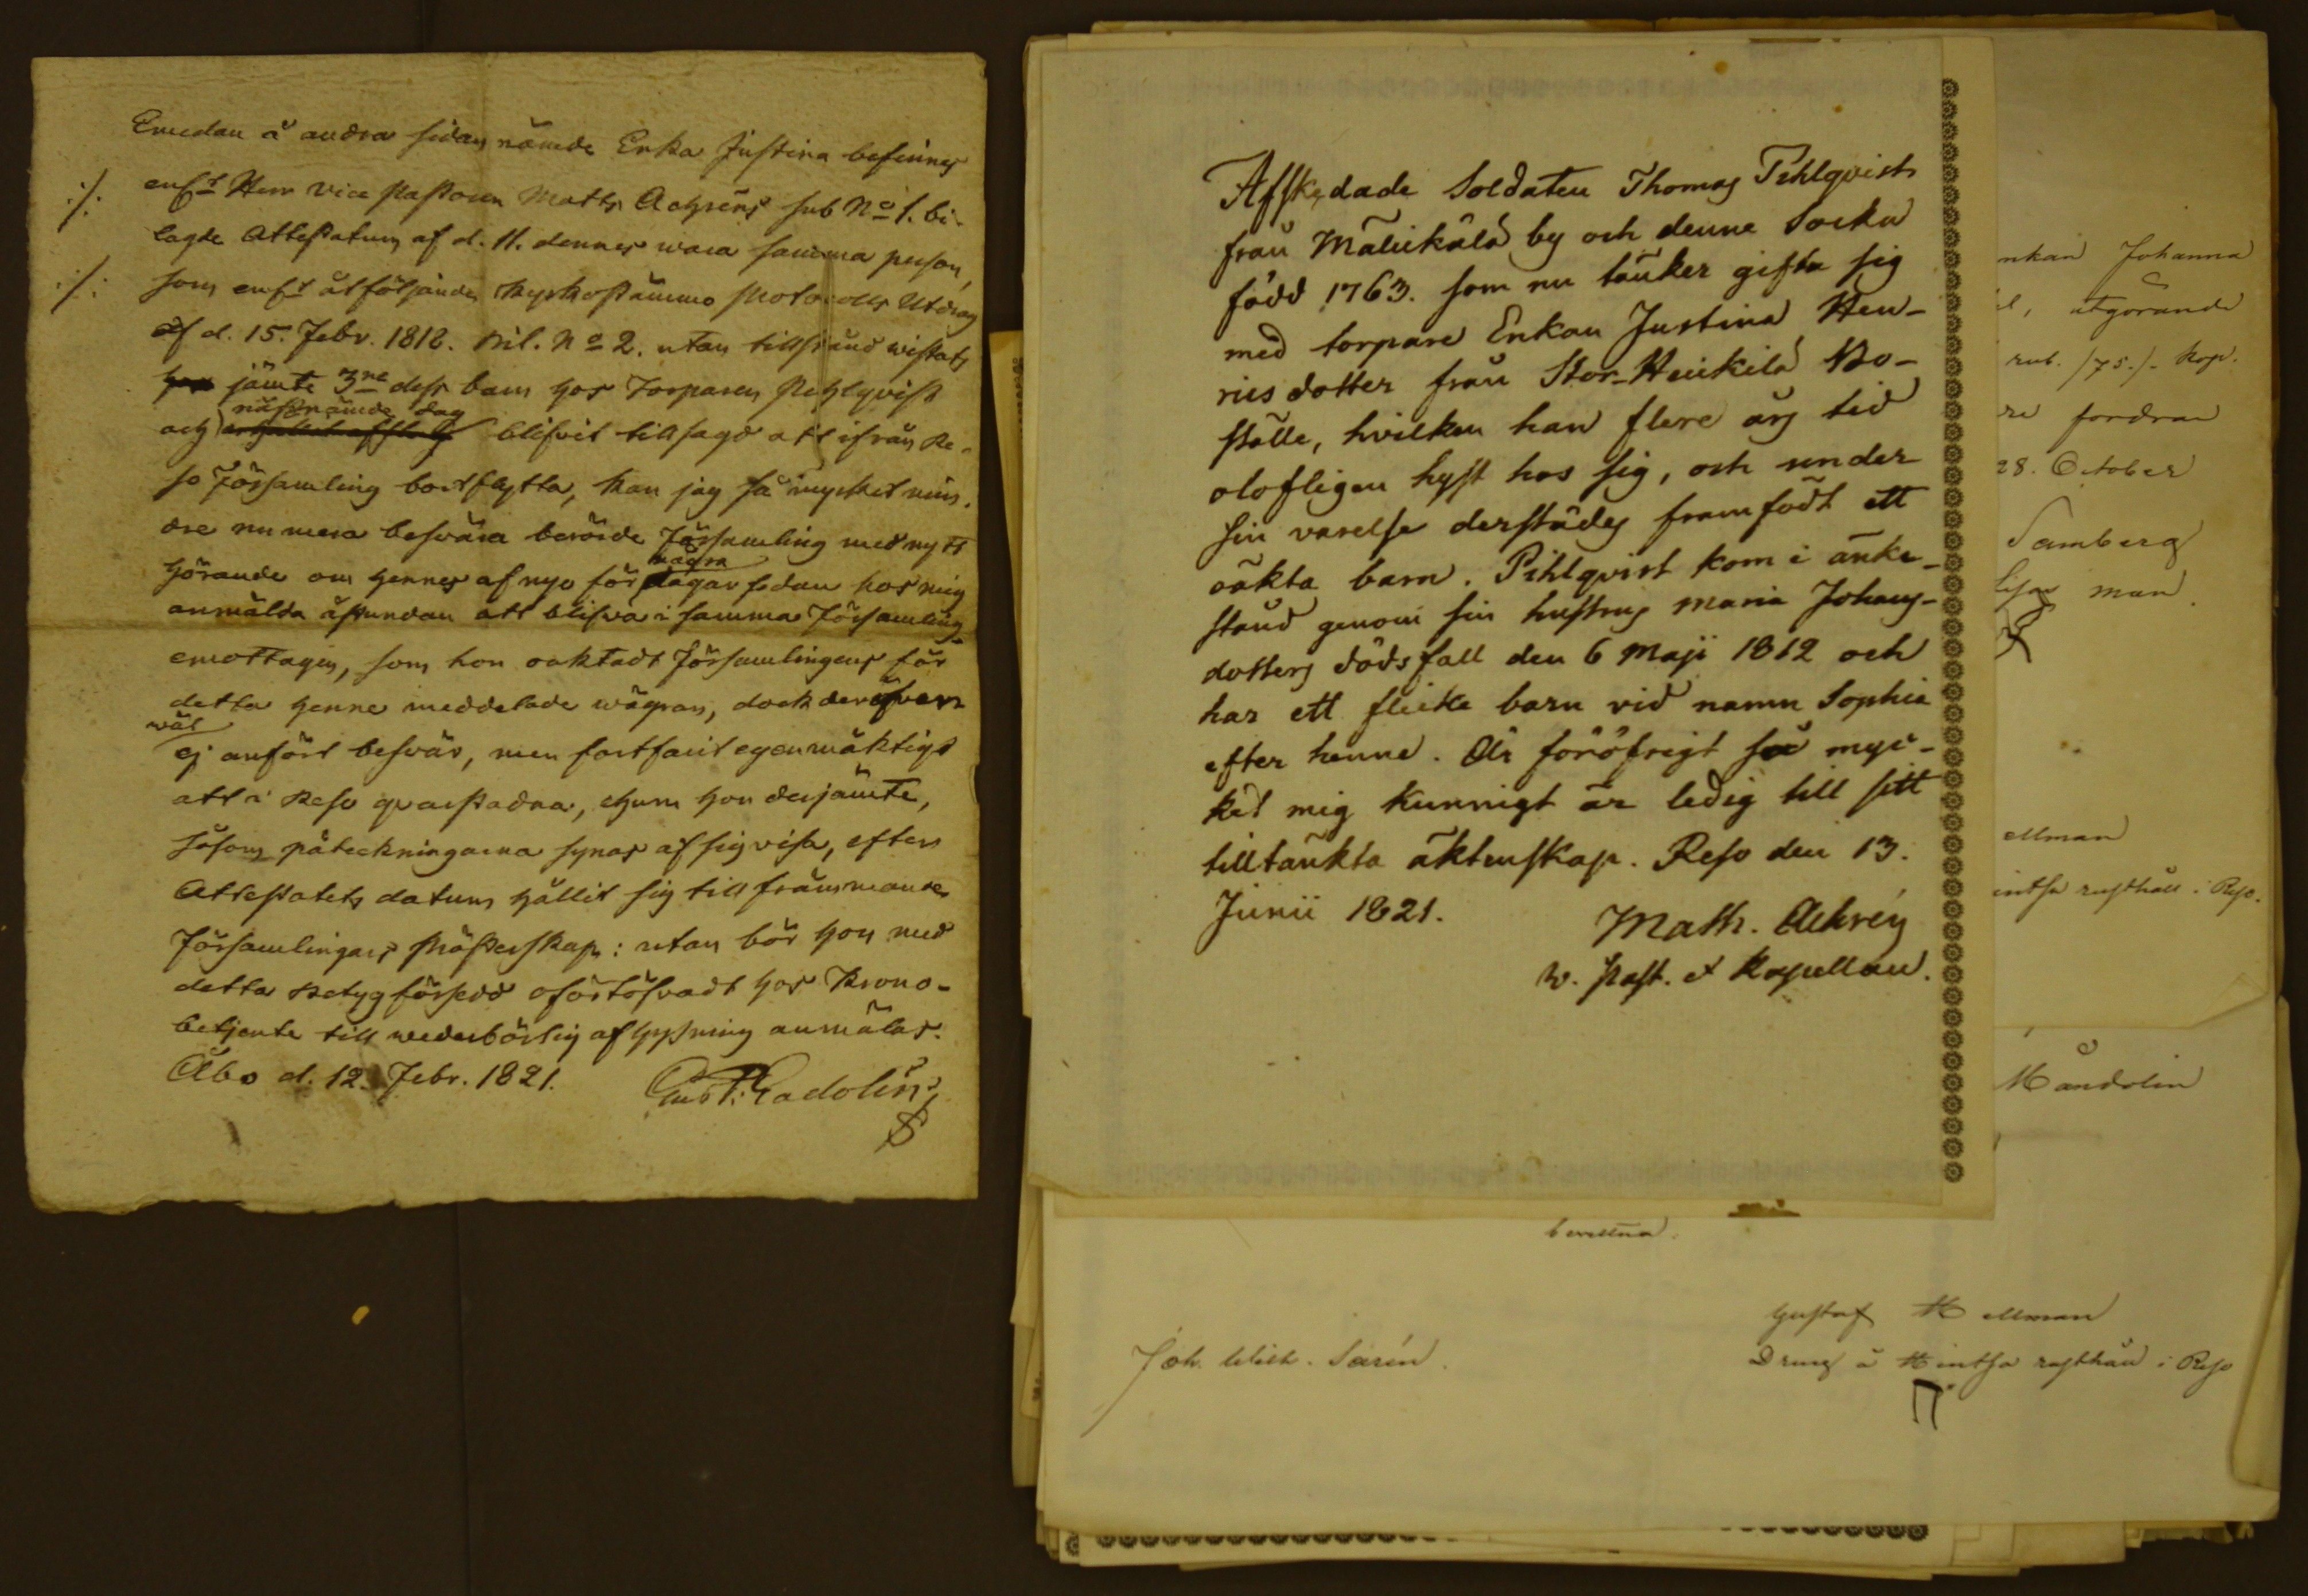 Emedan å andra sidan nämde Enka Justina befinnes
./. enl:t Herr Vice Pastoren Matts Achréns sub No 1. bi-
lagde Attestatum af d. 11. dennes wara samma person,
./. som enl:t åtföljande Kyrkostämmo Protocolls Utdrag
af d. 15. Febr. 1818. Bil. No 2. utan tillstånd wistats
jämte 3ne dess barn hos Torparen Pehlqvist
och nästnämde dag blifvit tillsagd att ifrån Re-
so Församling bortflytta, kan jag så mycket min-
dre numera beswära berörde Församling med nytt
hörande om hennes af nyo för några dagar sedan hos mig
anmälda åstundan att blifwa i samma Församling
emottagen, som hon oaktadt Församlingens för
detta henne meddelade wägran, dock deröfver
wäl
ej anfört beswär, men fortfarit egenmäktigt
att i Reso qvarstadna, ehuru hon derjämte,
såsom påteckningarna synas af sig visa, efter
Attestatets datum hållit sig till främmande
Församlingars Prästerskap: utan bör hon med
detta Betyg försedd ofördröjvadt hos Krono-
betjente till wederbörlig aflysning anmälas.
Åbo d. 12. Febr. 1821. Gust: Gadolin
Afskedade Soldaten Thomas Pihlqvist
från Mälikälä by och denne Socken
född 1763. som nu tänker gifta sig
med torpare Enkan Justina Hen-
ricsdotter från Stor-Heikilä Bo-
ställe, hvilken han flere års tid
olofligen hyst hos sig, och under
sin varelse derstädes framfödt ett
oäkta barn. Pihlqvist kom i änke-
stånd genom sin hustrus Maria Johans-
dotters dödsfall den 6 Maji 1812 och
har ett flicke barn vid namn Sophia
efter henne. Är föröfrigt så myc-
ket mig kunnigt är ledig till sitt
tilltänkta äktenskap. Reso den 13.
Junii 1821. Math. Achrén
v. Past. et Kapellan.
nkan Johanna
utgörande
rub. 75. kop.
fordran
28. October
Samberg
man
ellman
rusthåll i Reso.
Måndolin
Gustaf Hellman
Joh. Wilh. Sarén. Dreng å Hintsa rusthåll i Reso